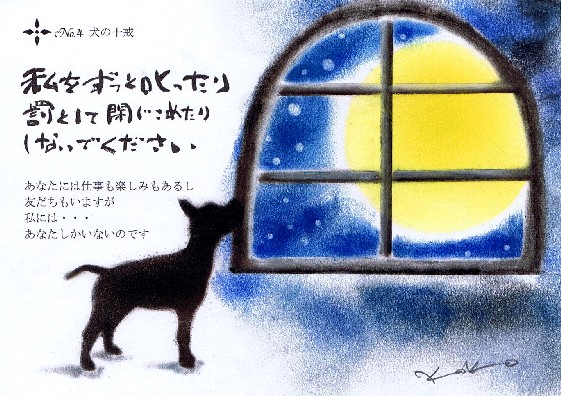 No.4 犬の十戒
私をずっと叱ったり
罰として閉じこめたり
しないでください
あなたには仕事も楽しみもあるし
友だちもいますが
私には・・・
あなたしかいないのです